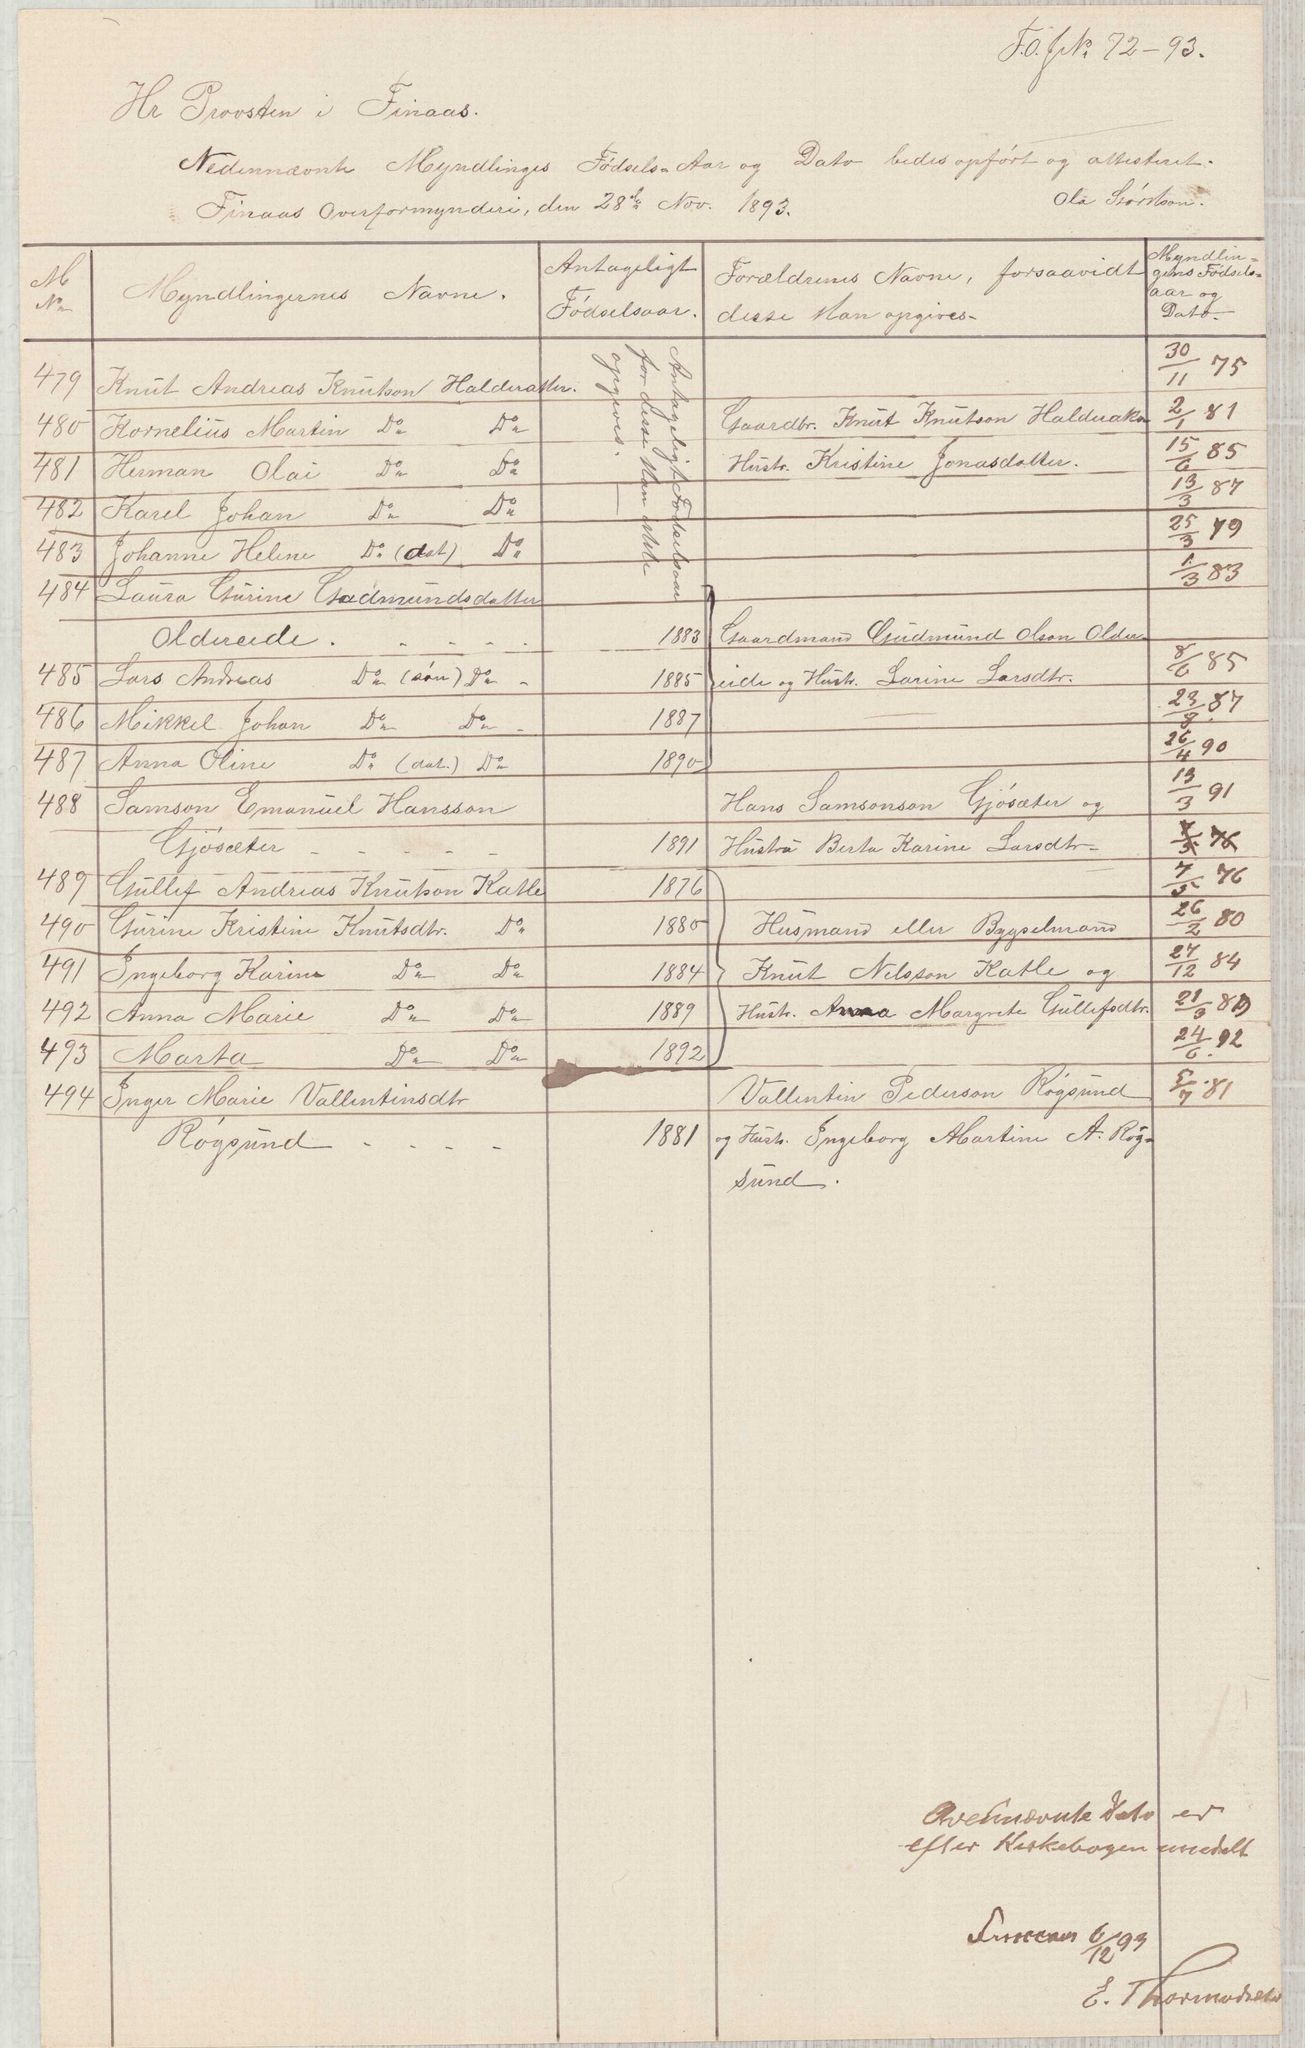 F.O. J.No. 72-93.
Hr Provsten i Finaas.
Nedennævnte Myndlinges Fødsels-Aar og Dato bedes opført og attesteret.
Finaas Overformynderi, den 28de Nov. 1893.
Ola
M No. Myndlingernes Navne. Antageligt Fødselsaar. Forældrenes Navne, forsaavidt disse kan opgives. Myndlingens Fødselsaar og Dato.
Antageligt Fødselsaar for disse kan ikke opgives.
479 Knut Andreas Knutson Halderaker. 30/11 75
480 Kornelius Martin Do Do Gaardbr. Knut Knutson Halderaker 2/1 81
481 Herman Olai Do Do Hustr. Kristine Jonasdatter. 15/6 85
482 Karel Johan Do Do 13/3 87
483 Johanne Helene Do (dat) Do 25/3 79
484 Laura Gurine Gudmundsdatter 1/3 83
Oldereide . - - - - 1883 Gaardmand Gudmund Olson Older-
485 Lars Andreas Do (søn) Do - 1885 eide og Hustr. Larine Larsdtr. 8/6 85
486 Mikkel Johan Do Do - 1887 23/8 87
487 Anna Oline Do (dat.) Do 1890 26/4 90
488 Samson Emanuel Hansson Hans Samsonson Gjøsæter og 13/3 91
Gjøsæter - - - - - 1891 Hustru Berta Karine Larsdtr- 7/5 76
489 Gullef Andreas Knutson Katle 1876 7/5 76
490 Gurine Kristine Knutsdtr. Do 1880 Husmand eller Bygselmand 26/2 80
491 Ingeborg Karine Do Do 1884 Knut Nelsson Katle og 27/12 84
492 Anna Marie Do Do 1889 Hustr. Anna Margrete Gullefsdtr. 21/9 89
493 Marta Do Do 1892 24/6 92
494 Inger Marie Vallentinsdtr Vallentin Pederson Røgsund 5/7 81
Røgsund - - - - 1881 og Hustr. Ingeborg Martine A. Røg-
sund.
Ovennævnte Dato er
efter Kirkebogen meddelt
Finaas 6/12 93
E. Thormodsæter